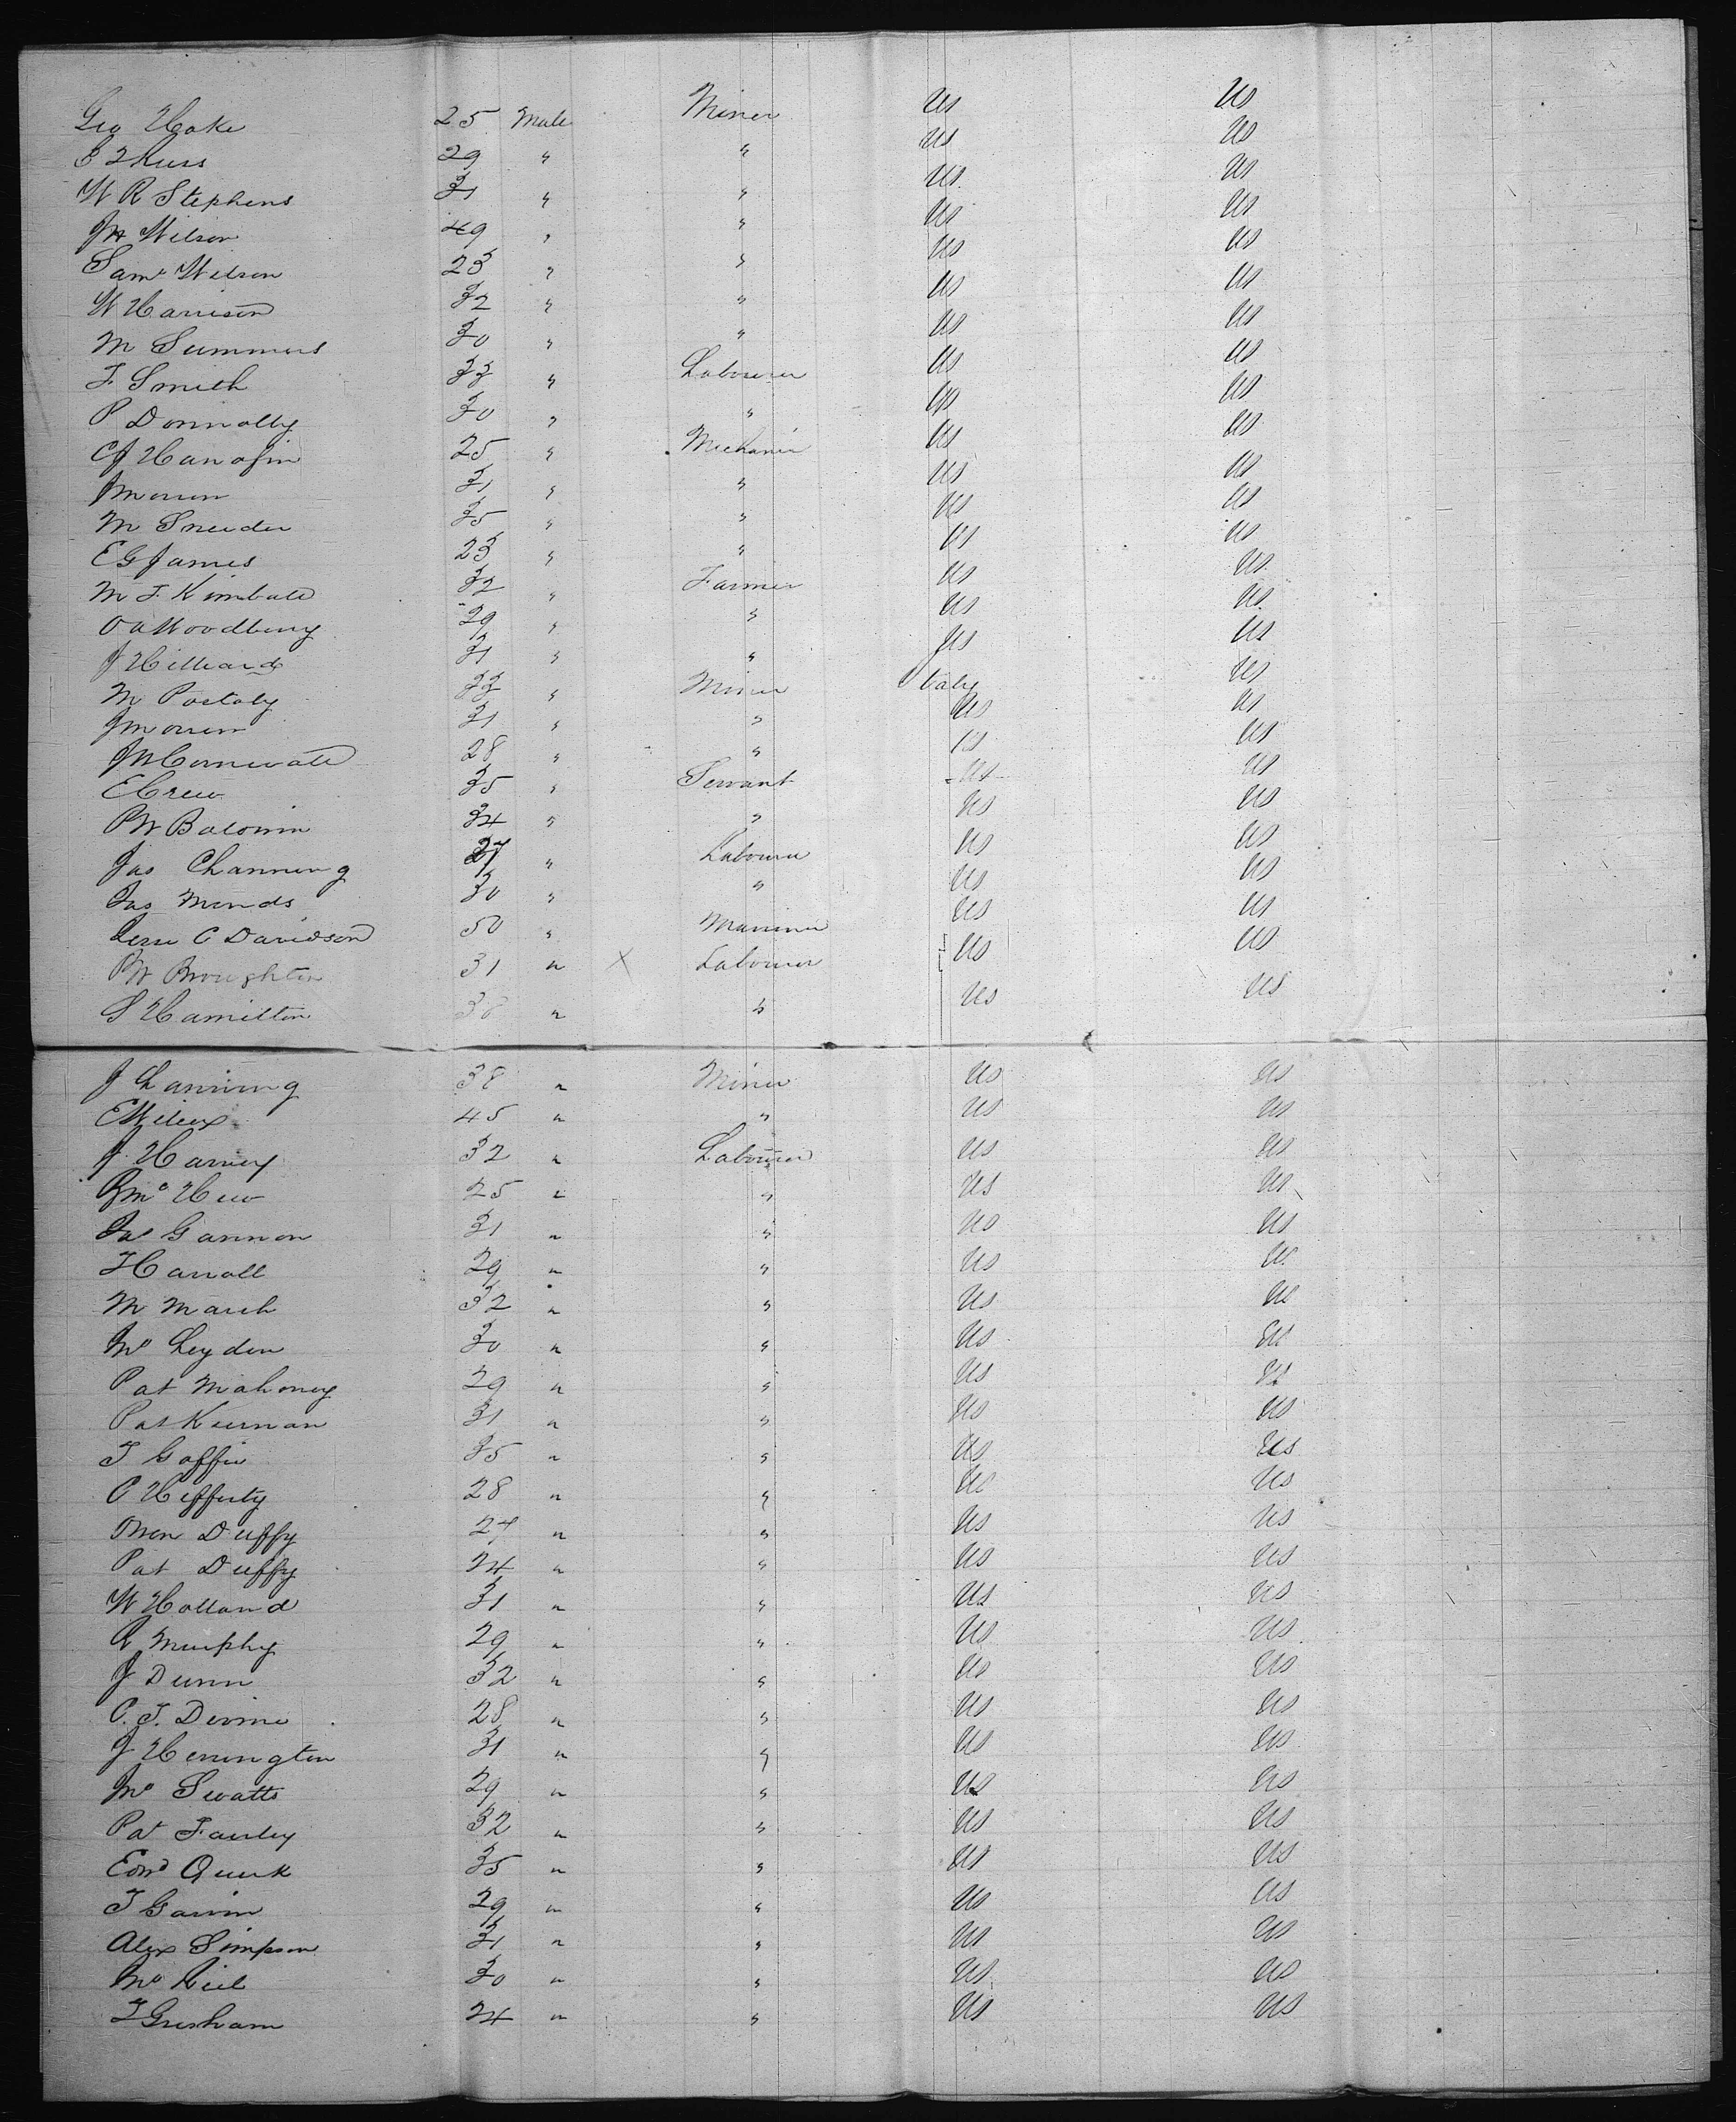 Geo Hoke 25 Male Miner US US
29 " " US US
W R Stephens 31 " " US US
Wilson 49 " " US US
Saml Wilson 23 " " US US
W Harrison 32 " " US US
M Summers 30 " " US US
F Smith 33 " Labourer US US
P Donnolly 30 " " US US
C J Hanafin 25 " Mechanic US US
J Moren 31 " " US US
M Sneider 35 " " US US
E G James 23 " " US US
M F Kimball 32 " Farmer US US
O A Woodberry 29 " " US US
J Hilliard 31 " " US US
M 33 " Miner Italy US
J Moren 31 " " US US
J M Cornwall 28 " " US US
E Crew 35 " Servant US US
P W Baldwin 34 " " US US
Jas Channing 27 " Labourer US US
Jas Minds 30 " " US US
Jesse C Davidson 50 " Mariner US US
P W Broughton 31 " X Labourer US US
S Hamilton 38 " " US US
J Channing 38 " Miner US US
E Wilcox 45 " " US US
J Harvey 32 " Labourer US US
25 " " US US
Jas Gannon 31 " " US US
29 " " US US
M March 32 " " US US
Leyden 30 " " US US
Pat Mahoney 29 " " US US
Pat Kiernan 31 " " US US
T Goffin 35 " " US US
P Hefferty 28 " " US US
Owen Duffy 27 " " US US
Pat Duffy 24 " " US US
W Holland 31 " " US US
R Murphy 29 " " US US
J Dunn 32 " " US US
C. T. Devine 28 " " US US
J Herrington 31 " " US US
Swatts 29 " " US US
Pat Fairley 32 " " US US
Edwd Quirk 35 " " US US
T Garvin 29 " " US US
Alex Simpson 31 " " US US
30 " " US US
T Gresham 24 " " US US